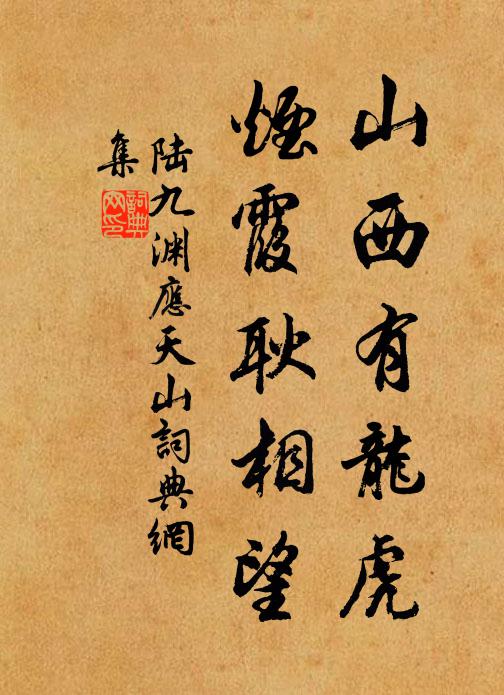 山西有龍虎
煙霞耿相望
陸九渊應天山詞典網
集
詞典網印